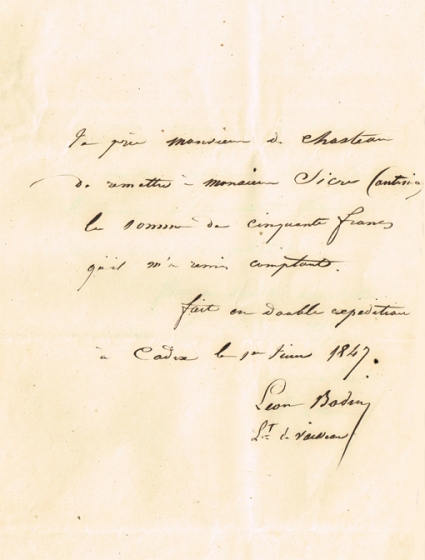 Je prie monsieur de Chasteau
de remettre à monsieur Sicre (antoine)
la somme de cinquante francs
qu'il m'a remis comptant.
fait en double expédition
à Cadix le 1er 1847.
Léon Bodin
Lt de vaisseau